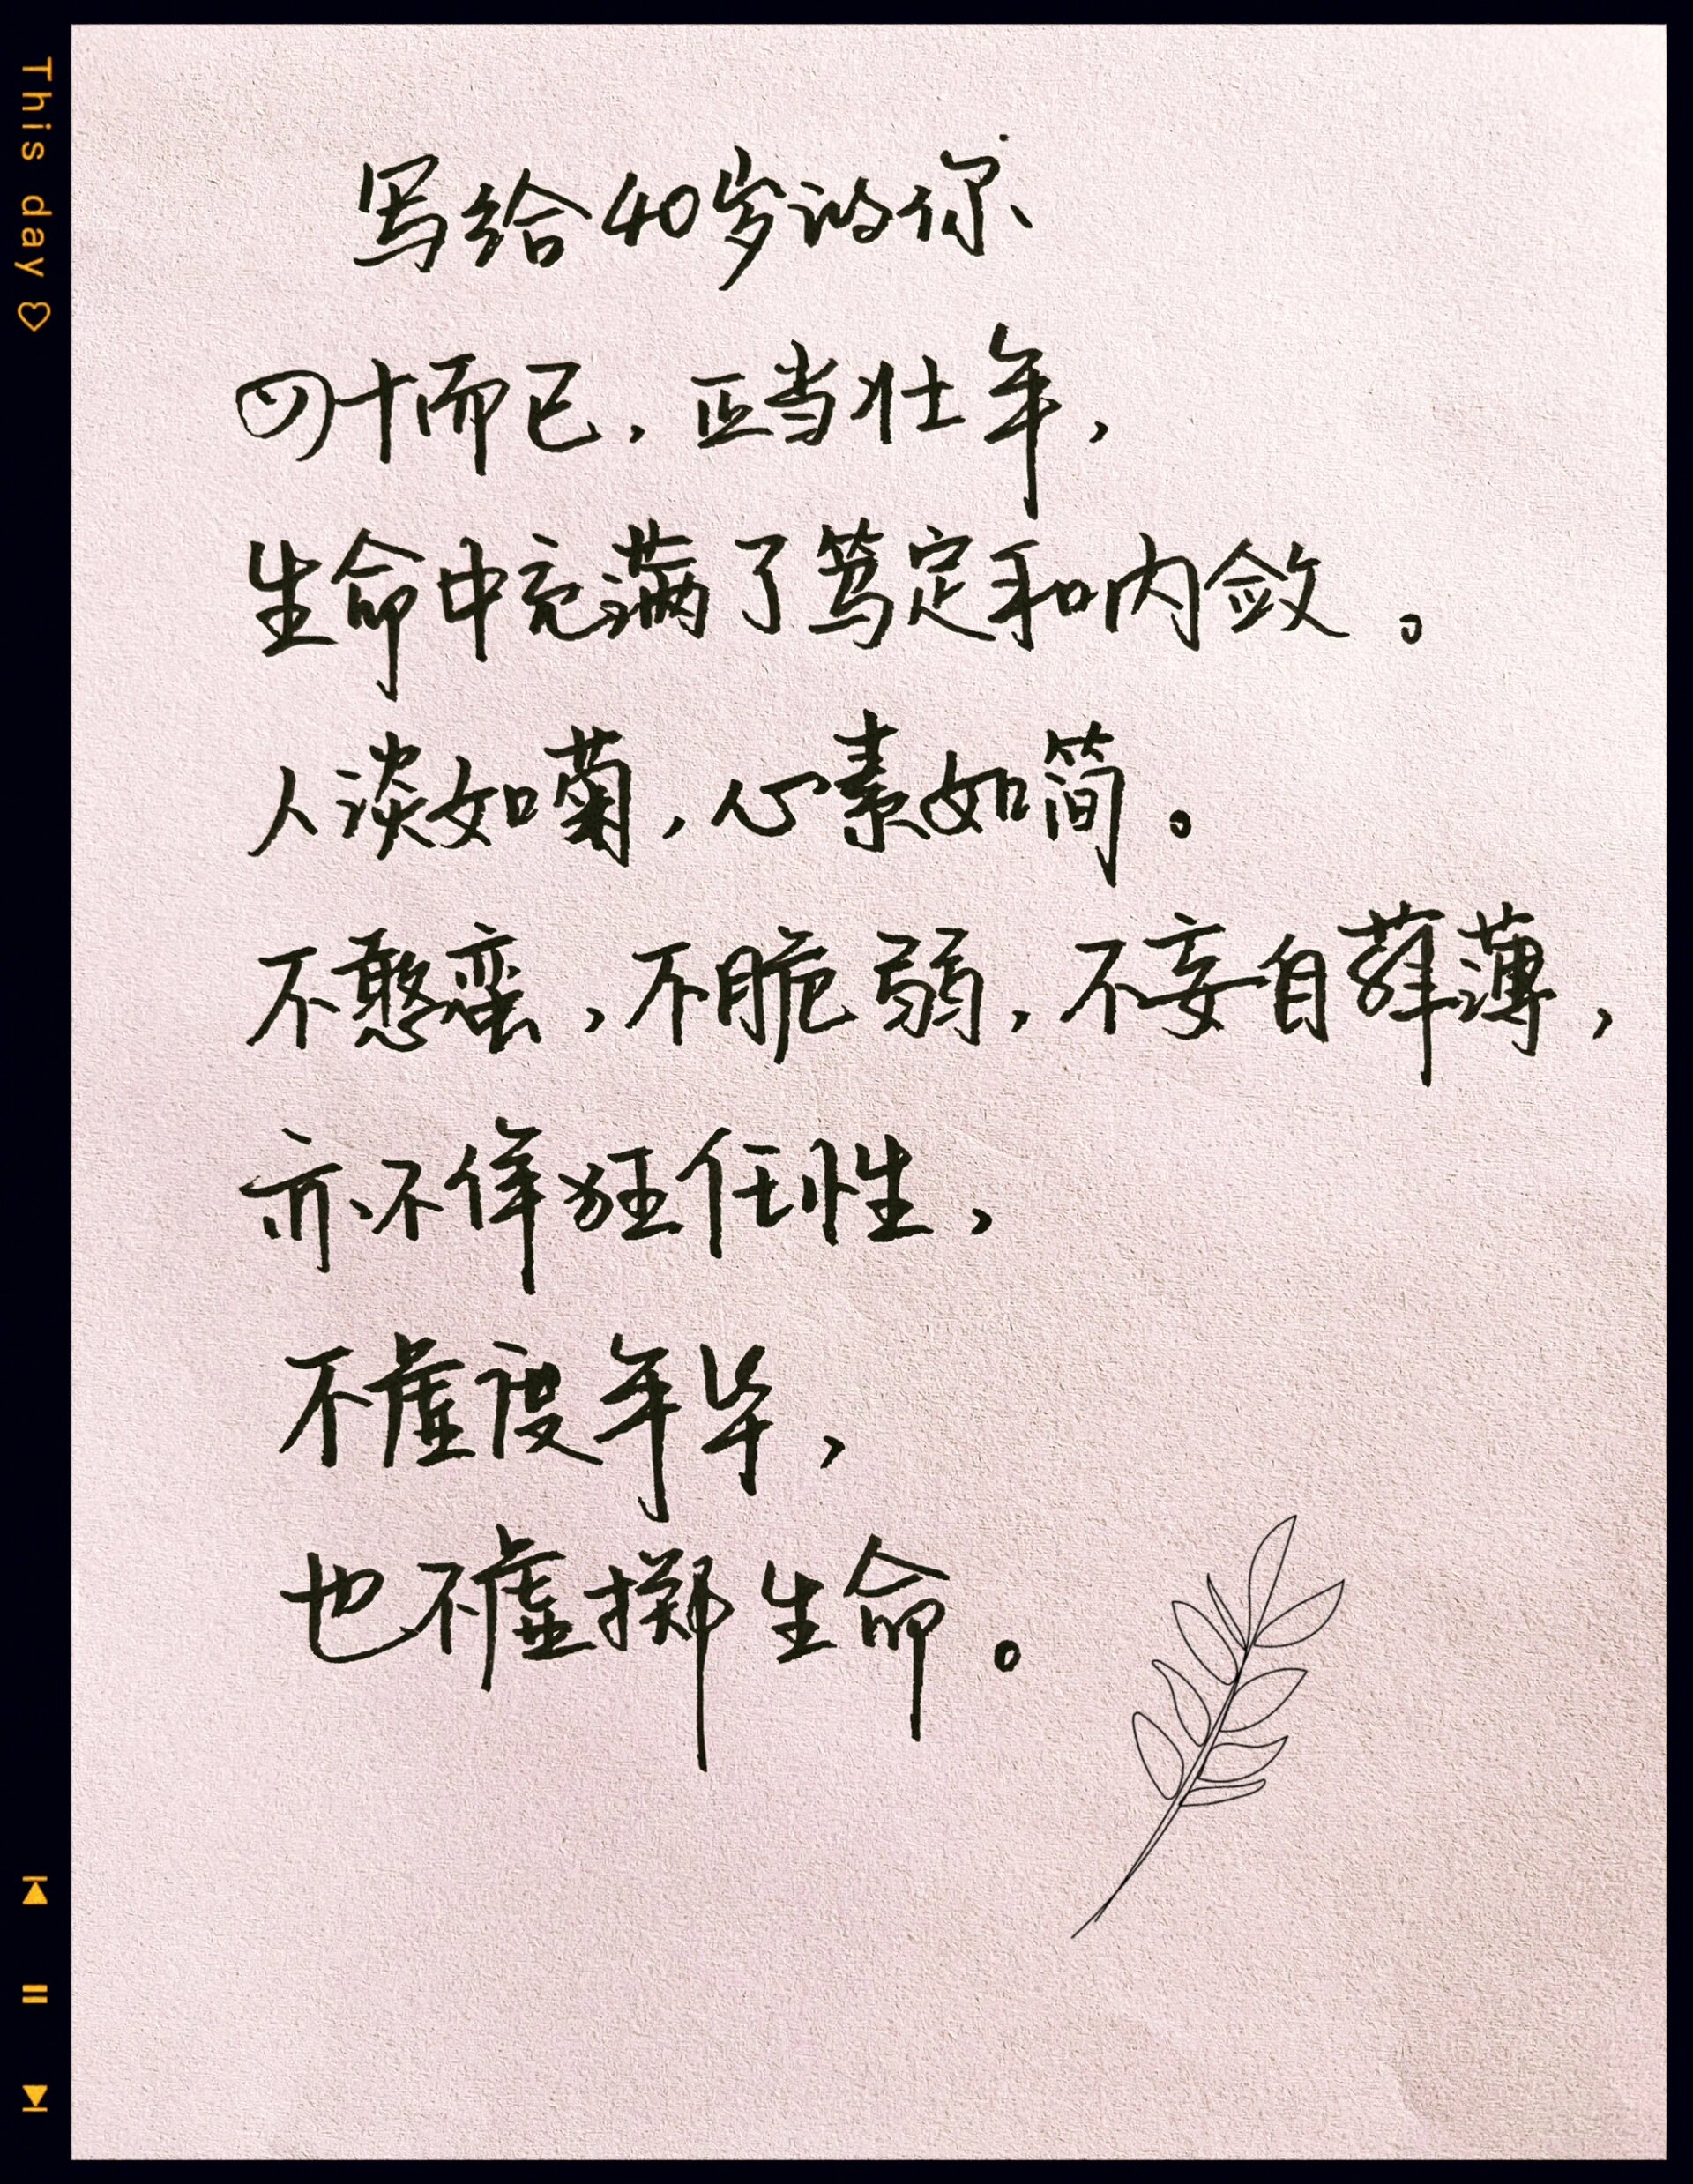 This day ♡
写给40岁的你
四十而已，正当壮年，
生命中充满了笃定和内敛。
人淡如菊，心素如简。
不憨蛮，不脆弱，不妄自菲薄，
亦不佯狂任性，
不虚度年华，
也不虚掷生命。